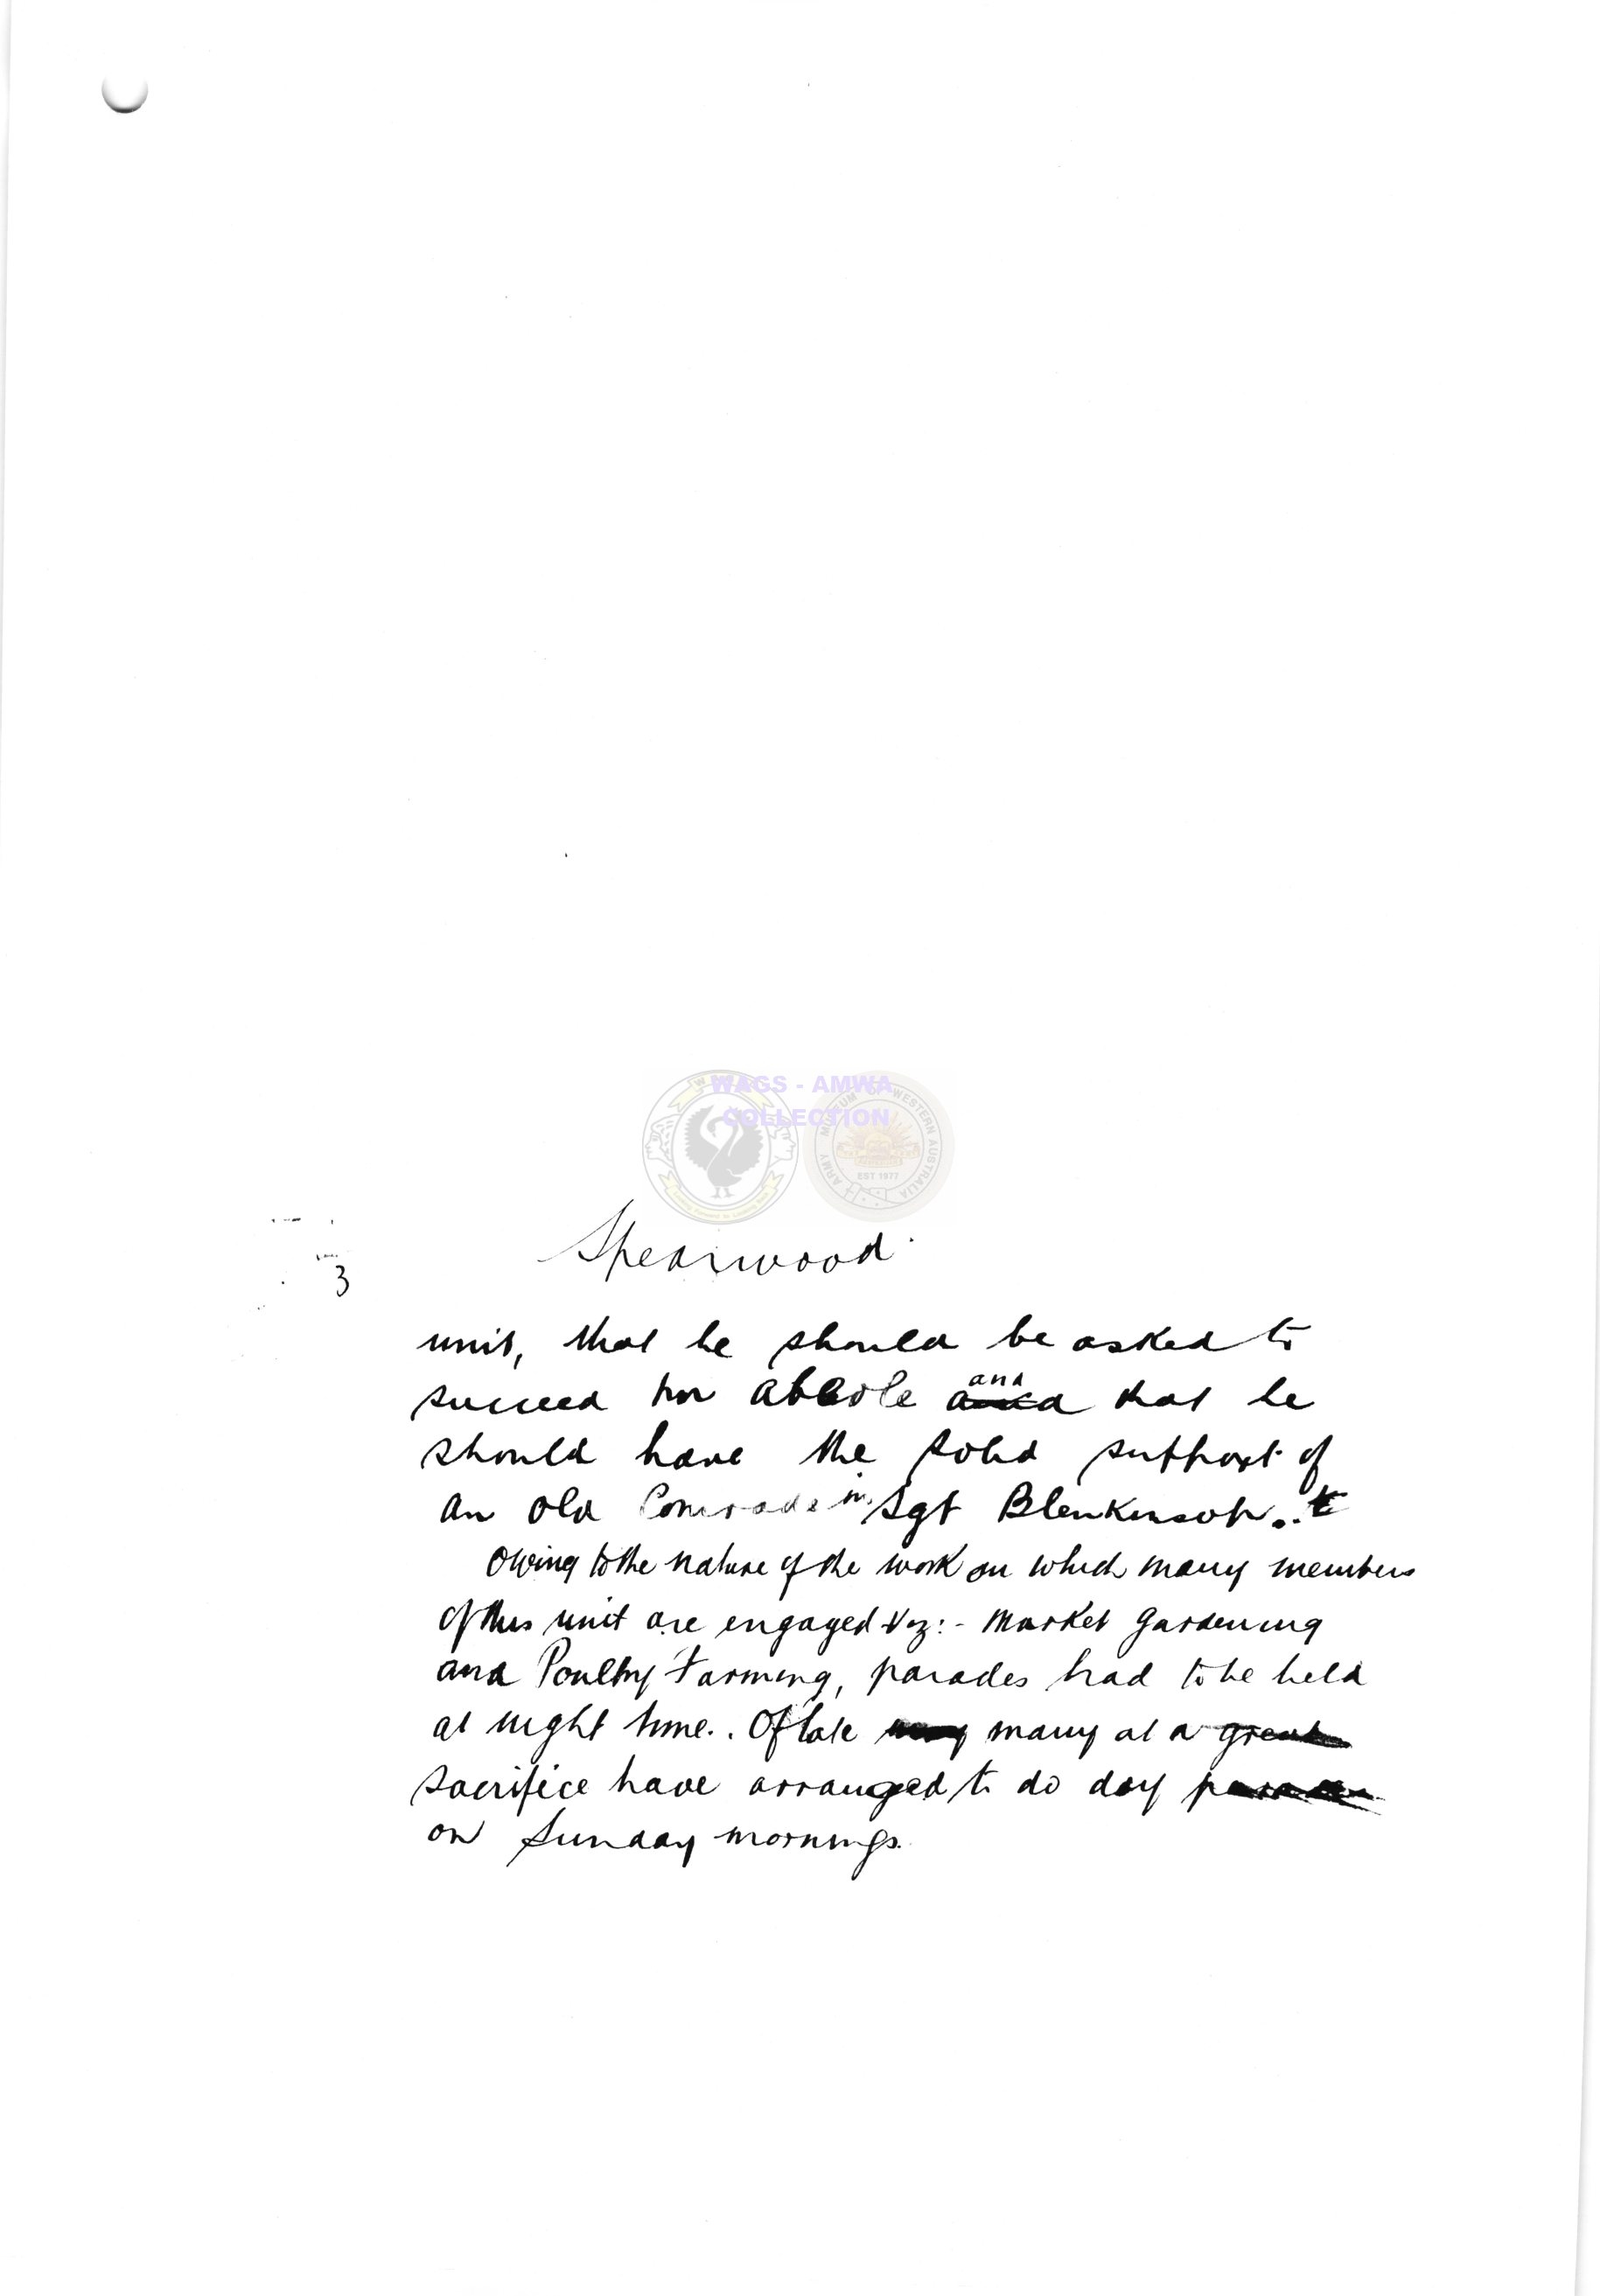 WAGS - AMWA
COLLECTION
MUSEUM OF WESTERN AUSTRALIA
ARMY
EST 1977
Spearwood
3
unit, that he should be asked to
succeed and that he
should have the solid support of
an old Comrade in Sgt Blenkinsop.
Owing to the nature of the work on which many members
of this unit are engaged viz:- Market Gardening
and Poultry Farming, parades had to be held
at night time. Of late many at a great
sacrifice have arranged to do day
on Sunday mornings.